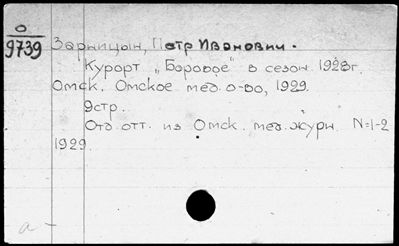 0
9739
Зарницын, Петр Иванович.
Курорт „Боровое" в сезон 1928г.
Омск. Омское мед. о-во, 1929.
9стр.
Отд. отт. из Омск. мед. журн. N=1-2
1929
а -